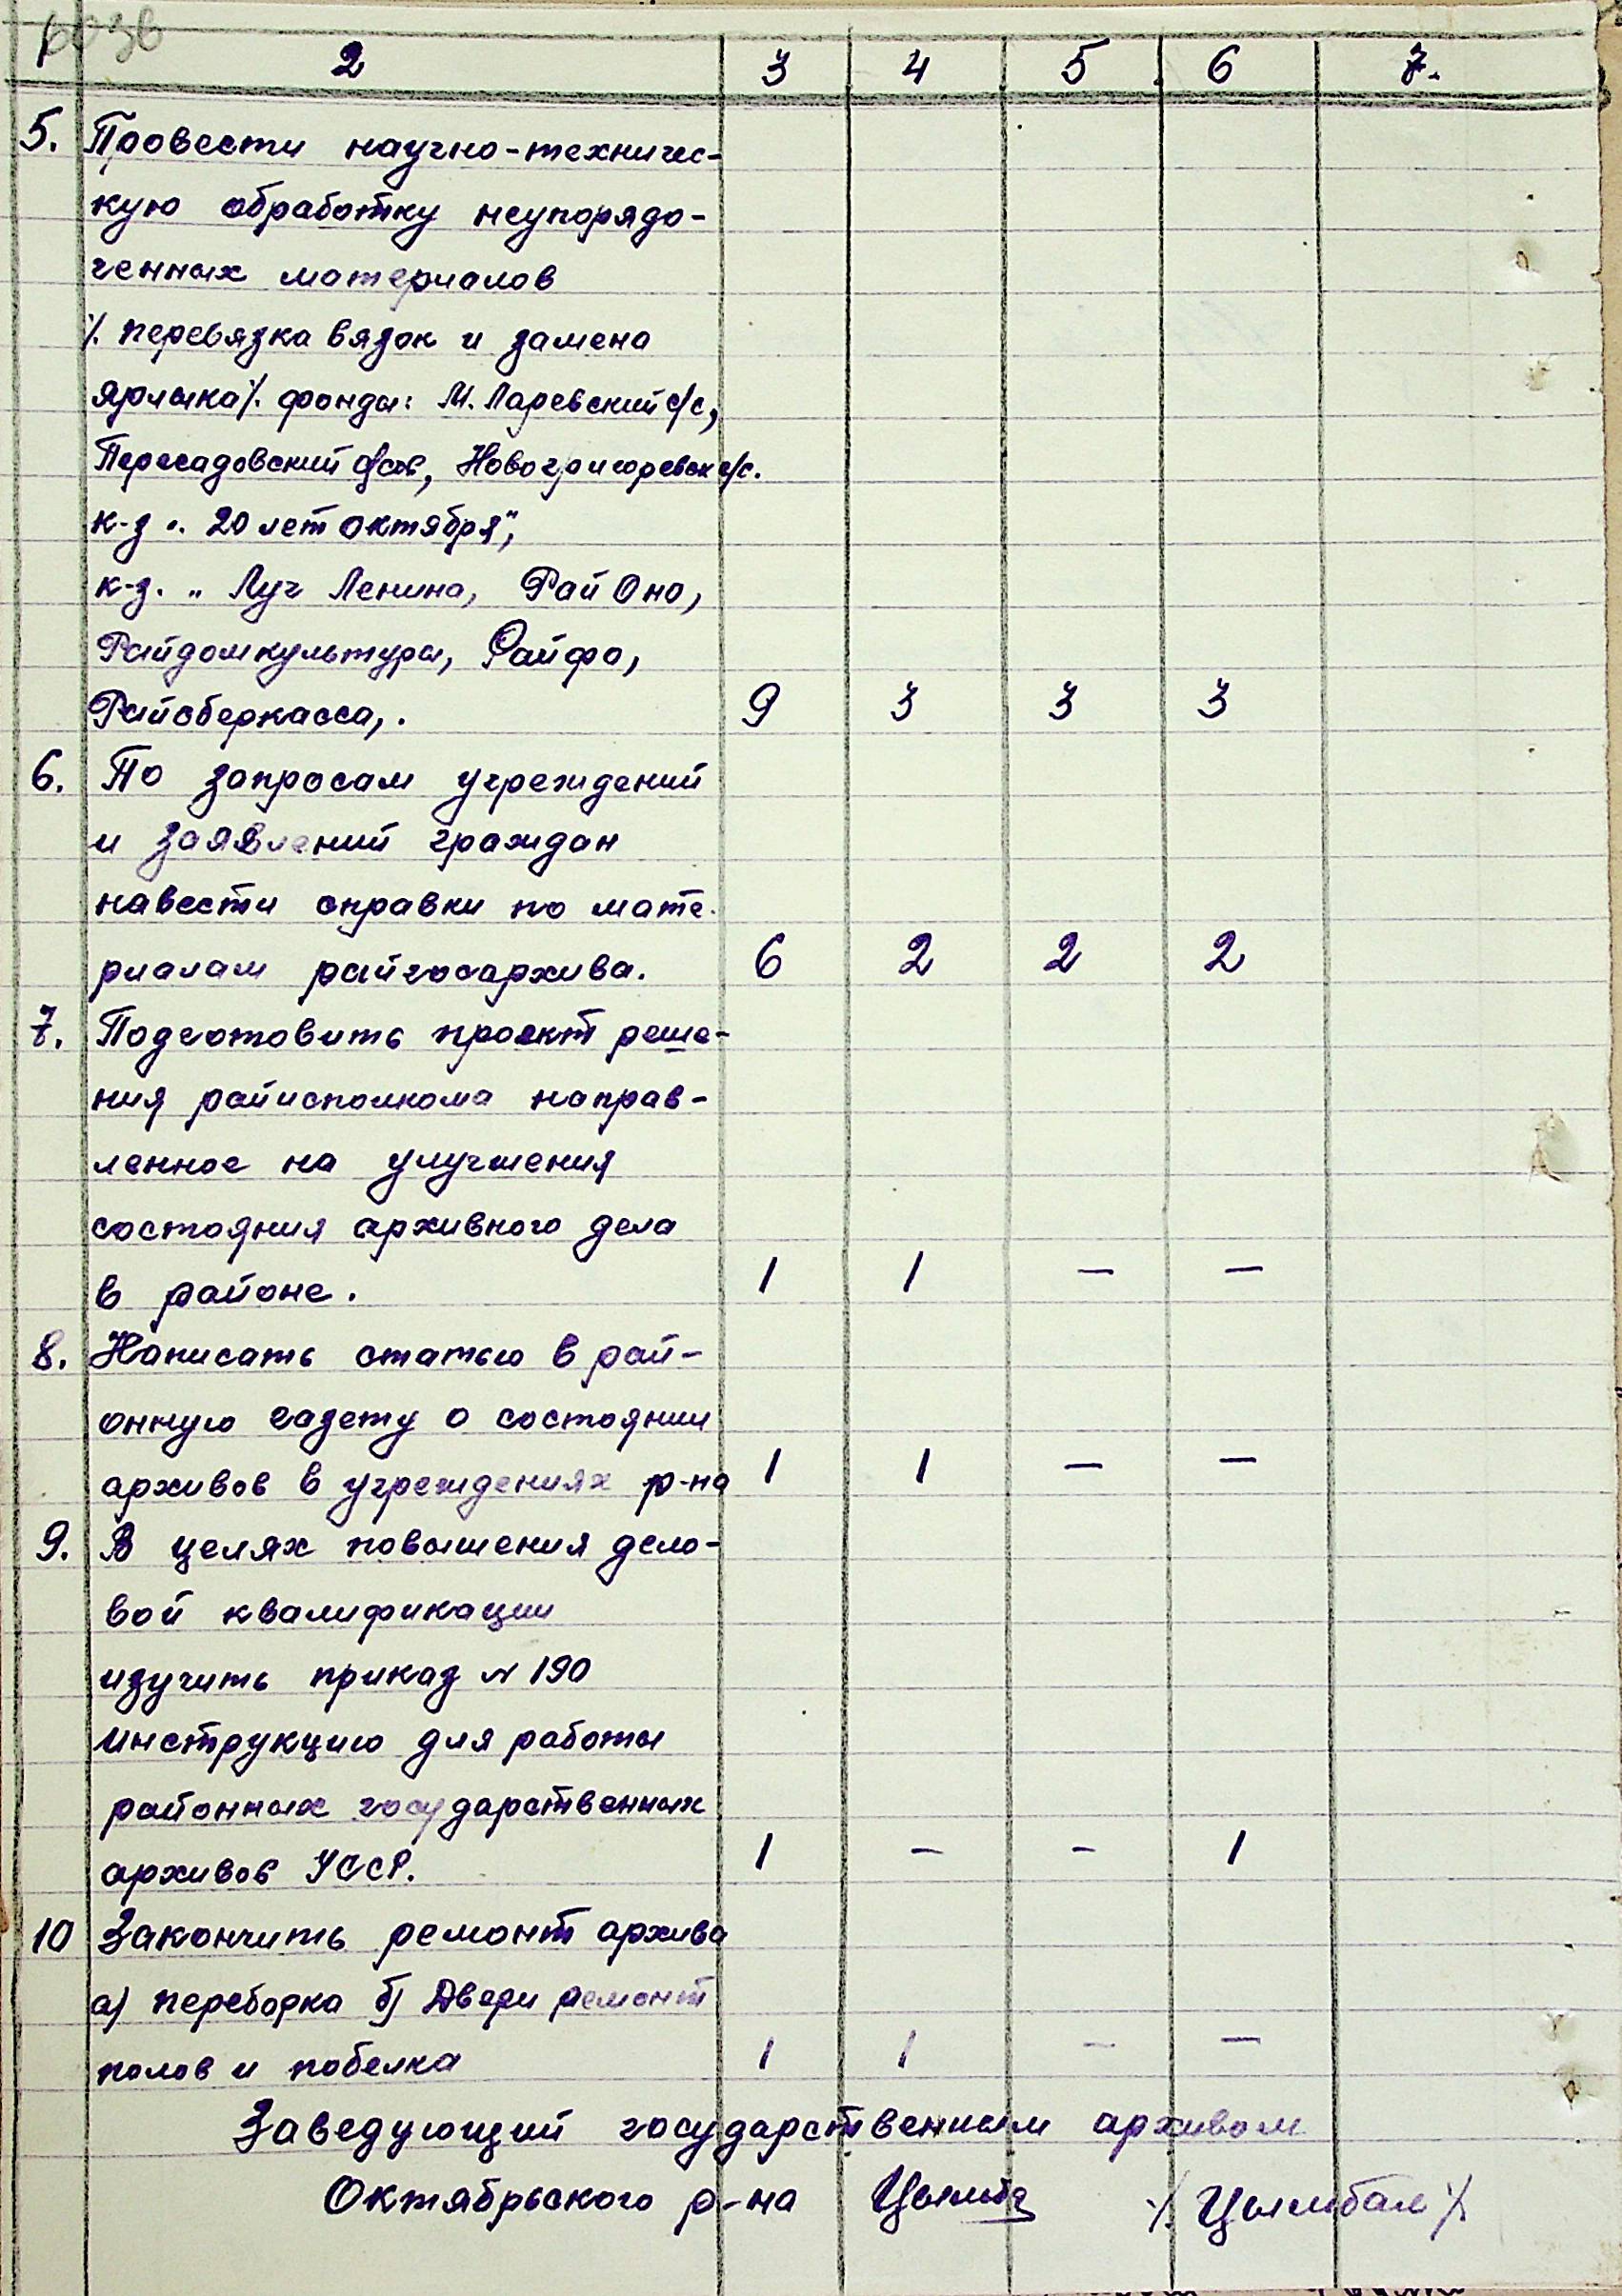 2 3 4 5 6 7.
5. Провести научно-техничес-
кую обработку неупорядо-
ченных материалов
/. перевязка вязок и замена
ярлыка/. фонды: М. Ларевский с/с,
Пересадовский с/сов, Новогригоревск с/с.
к-з „ 20 лет Октября",
к-з. „ Луч Ленина, Рай Оно,
Райдомкультуры, Райфо,
Райсберкасса,. 9 3 3 3
6. По запросам учреждений
и заявлений граждан
навести справки по мате-
риалам райгосархива. 6 2 2 2
7. Подготовить проект реше-
ния райисполкома направ-
ленное на улучшения
состояния архивного дела
в районе. 1 1 — —
8. Написать статью в рай-
онную газету о состоянии
архивов в учреждениях р-на 1 1 — —
9. В целях повышения дело-
вой квалификации
изучить приказ N 190
инструкцию для работы
районных государственных
архивов УССР. 1 - - 1
10 Закончить ремонт архива
а) переборка б) Двери ремонт
полов и побелка 1 1 - —
Заведующий государственным архивом
Октябрьского р-на Цымба /. Цымбал /.